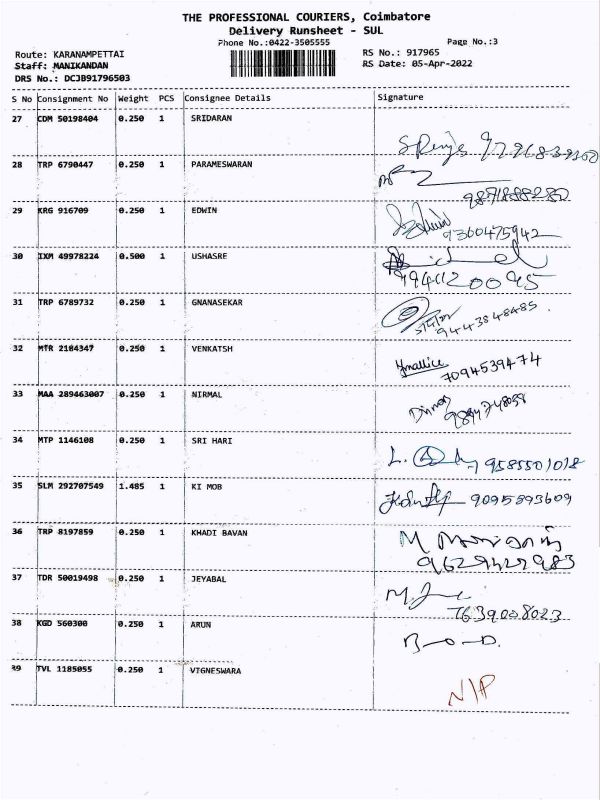 THE PROFESSIONAL COURIERS, Coimbatore
Delivery Runsheet - SUL
Phone No.:0422-3505555
Page No.:3
Route: KARANAMPETTAI
RS No.: 917965
Staff: MANIKANDAN
RS Date: 05-Apr-2022
DRS No.: DCJB91796503
S No Consignment No Weight PCS Consignee Details Signature
27 CDM 50198404 0.250 1 SRIDARAN
28 TRP 6790447 0.250 1 PARAMESWARAN
29 KRG 916709 0.250 1 EDWIN
9360475942
30 IXM 49978224 0.500 1 USHASRE
9941120095
31 TRP 6789732 0.250 1 GNANASEKAR
9443848485
32 MTR 2184347 0.250 1 VENKATSH
7094539474
33 MAA 289463007 0.250 1 NIRMAL
34 MTP 1146108 0.250 1 SRI HARI
L. 9585501018
35 SLM 292707549 1.485 1 KI MOB
9095893609
36 TRP 8197859 0.250 1 KHADI BAVAN
M
9629422983
37 TDR 50019498 0.250 1 JEYABAL
7639008023
38 KGD 560300 0.250 1 ARUN
39 TVL 1185055 0.250 1 VIGNESWARA
N/P